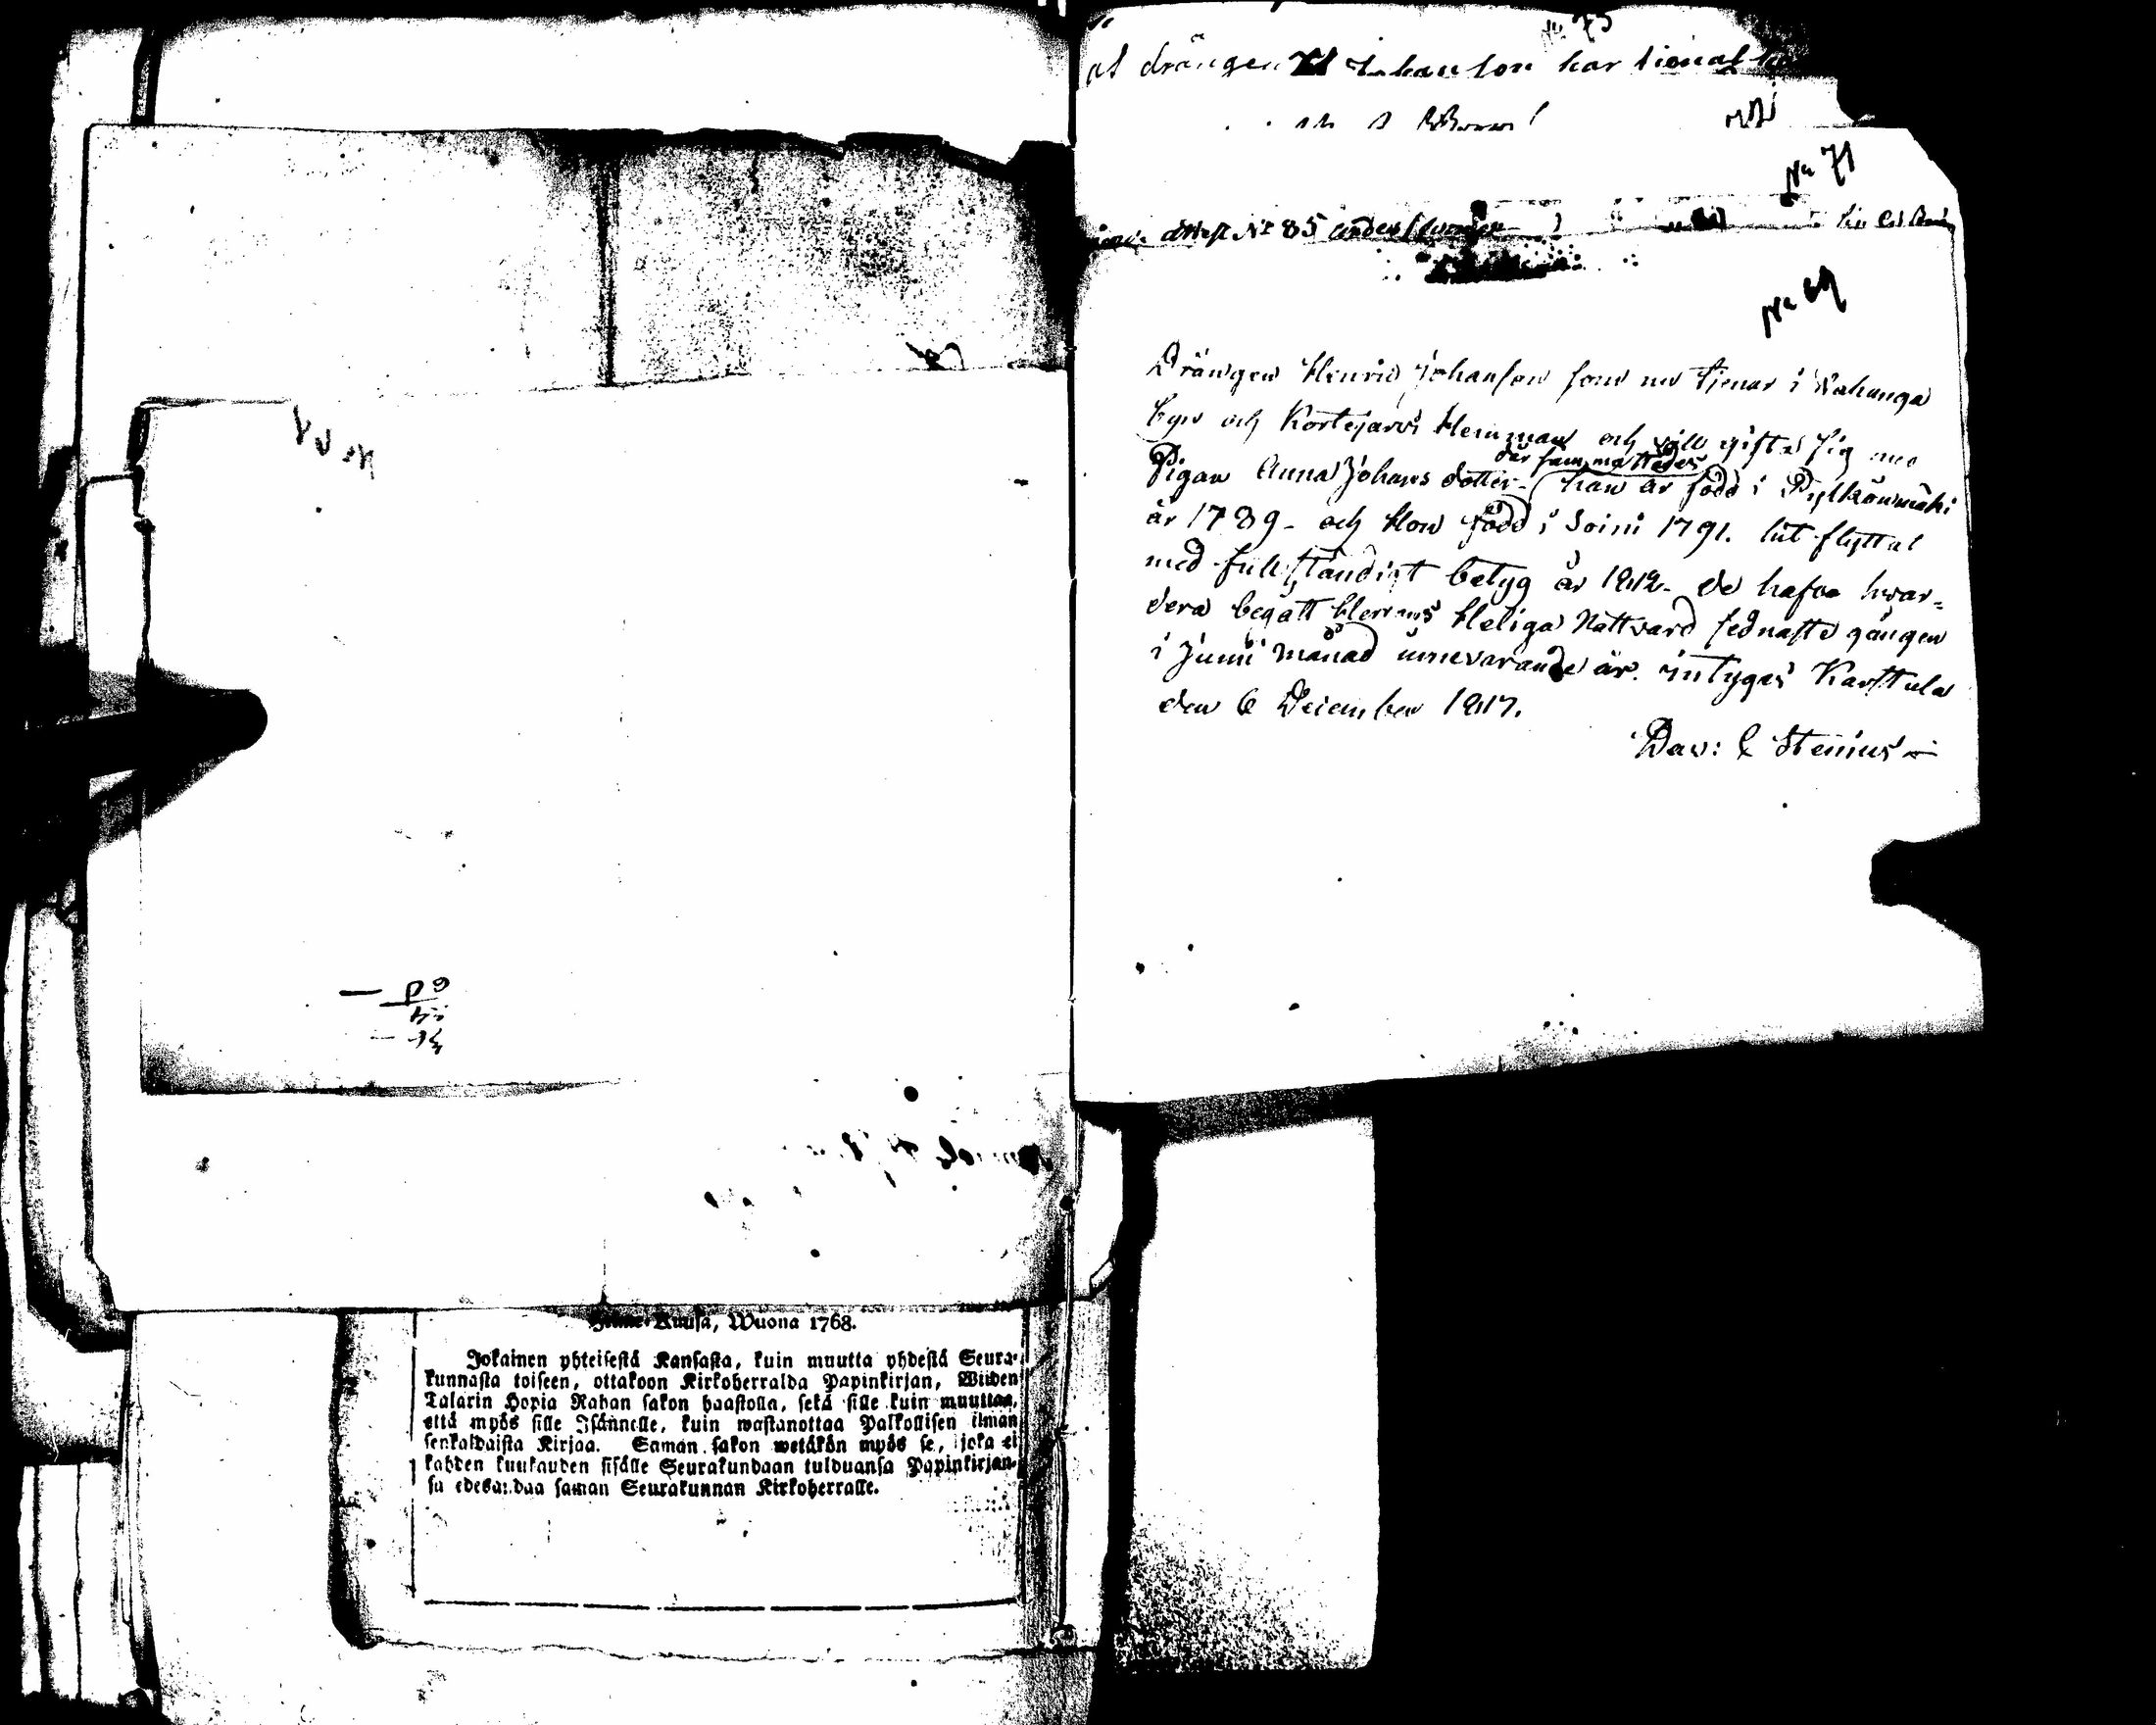 No 73
at drängen
har tienat
No 71
attest No 85
No 69
Drängen Henric Johanson som nu tjenar i Wahanga
byn och Kortejärvi Hemman och will gifta sig med
där sammastädes
Pigan Anna Johans dotter - han är född i Pylkönmäki
år 1789 - och Hon född i Soini 1791. hit flyttat
med fullständigt betyg år 1812 - de hafva hvar=
dera begått Herrans Heliga Nattvard sednaste gången
i Junii månad innevarande år. intygas Karstula
den 6 December 1817.
Dav: E Stenius
Kuusa, Wuona 1768.
Jokainen yhteisestä Kansasta, kuin muutta yhdestä Seura-
kunnasta toiseen, ottakoon Kirkoherralda Papinkirjan, Wiiden
Talarin Hopia Rahan sakon haastolla, sekä sille kuin muuttaa,
että myös sille Isännelle, kuin wastanottaa Palkollisen ilman
senkaldaista Kirjaa. Saman sakon wetäkön myös se, joka ei
kahden kuukauden sisälle Seurakundaan tulduansa Papinkirjan-
sa edesandaa saman Seurakunnan Kirkoherralle.